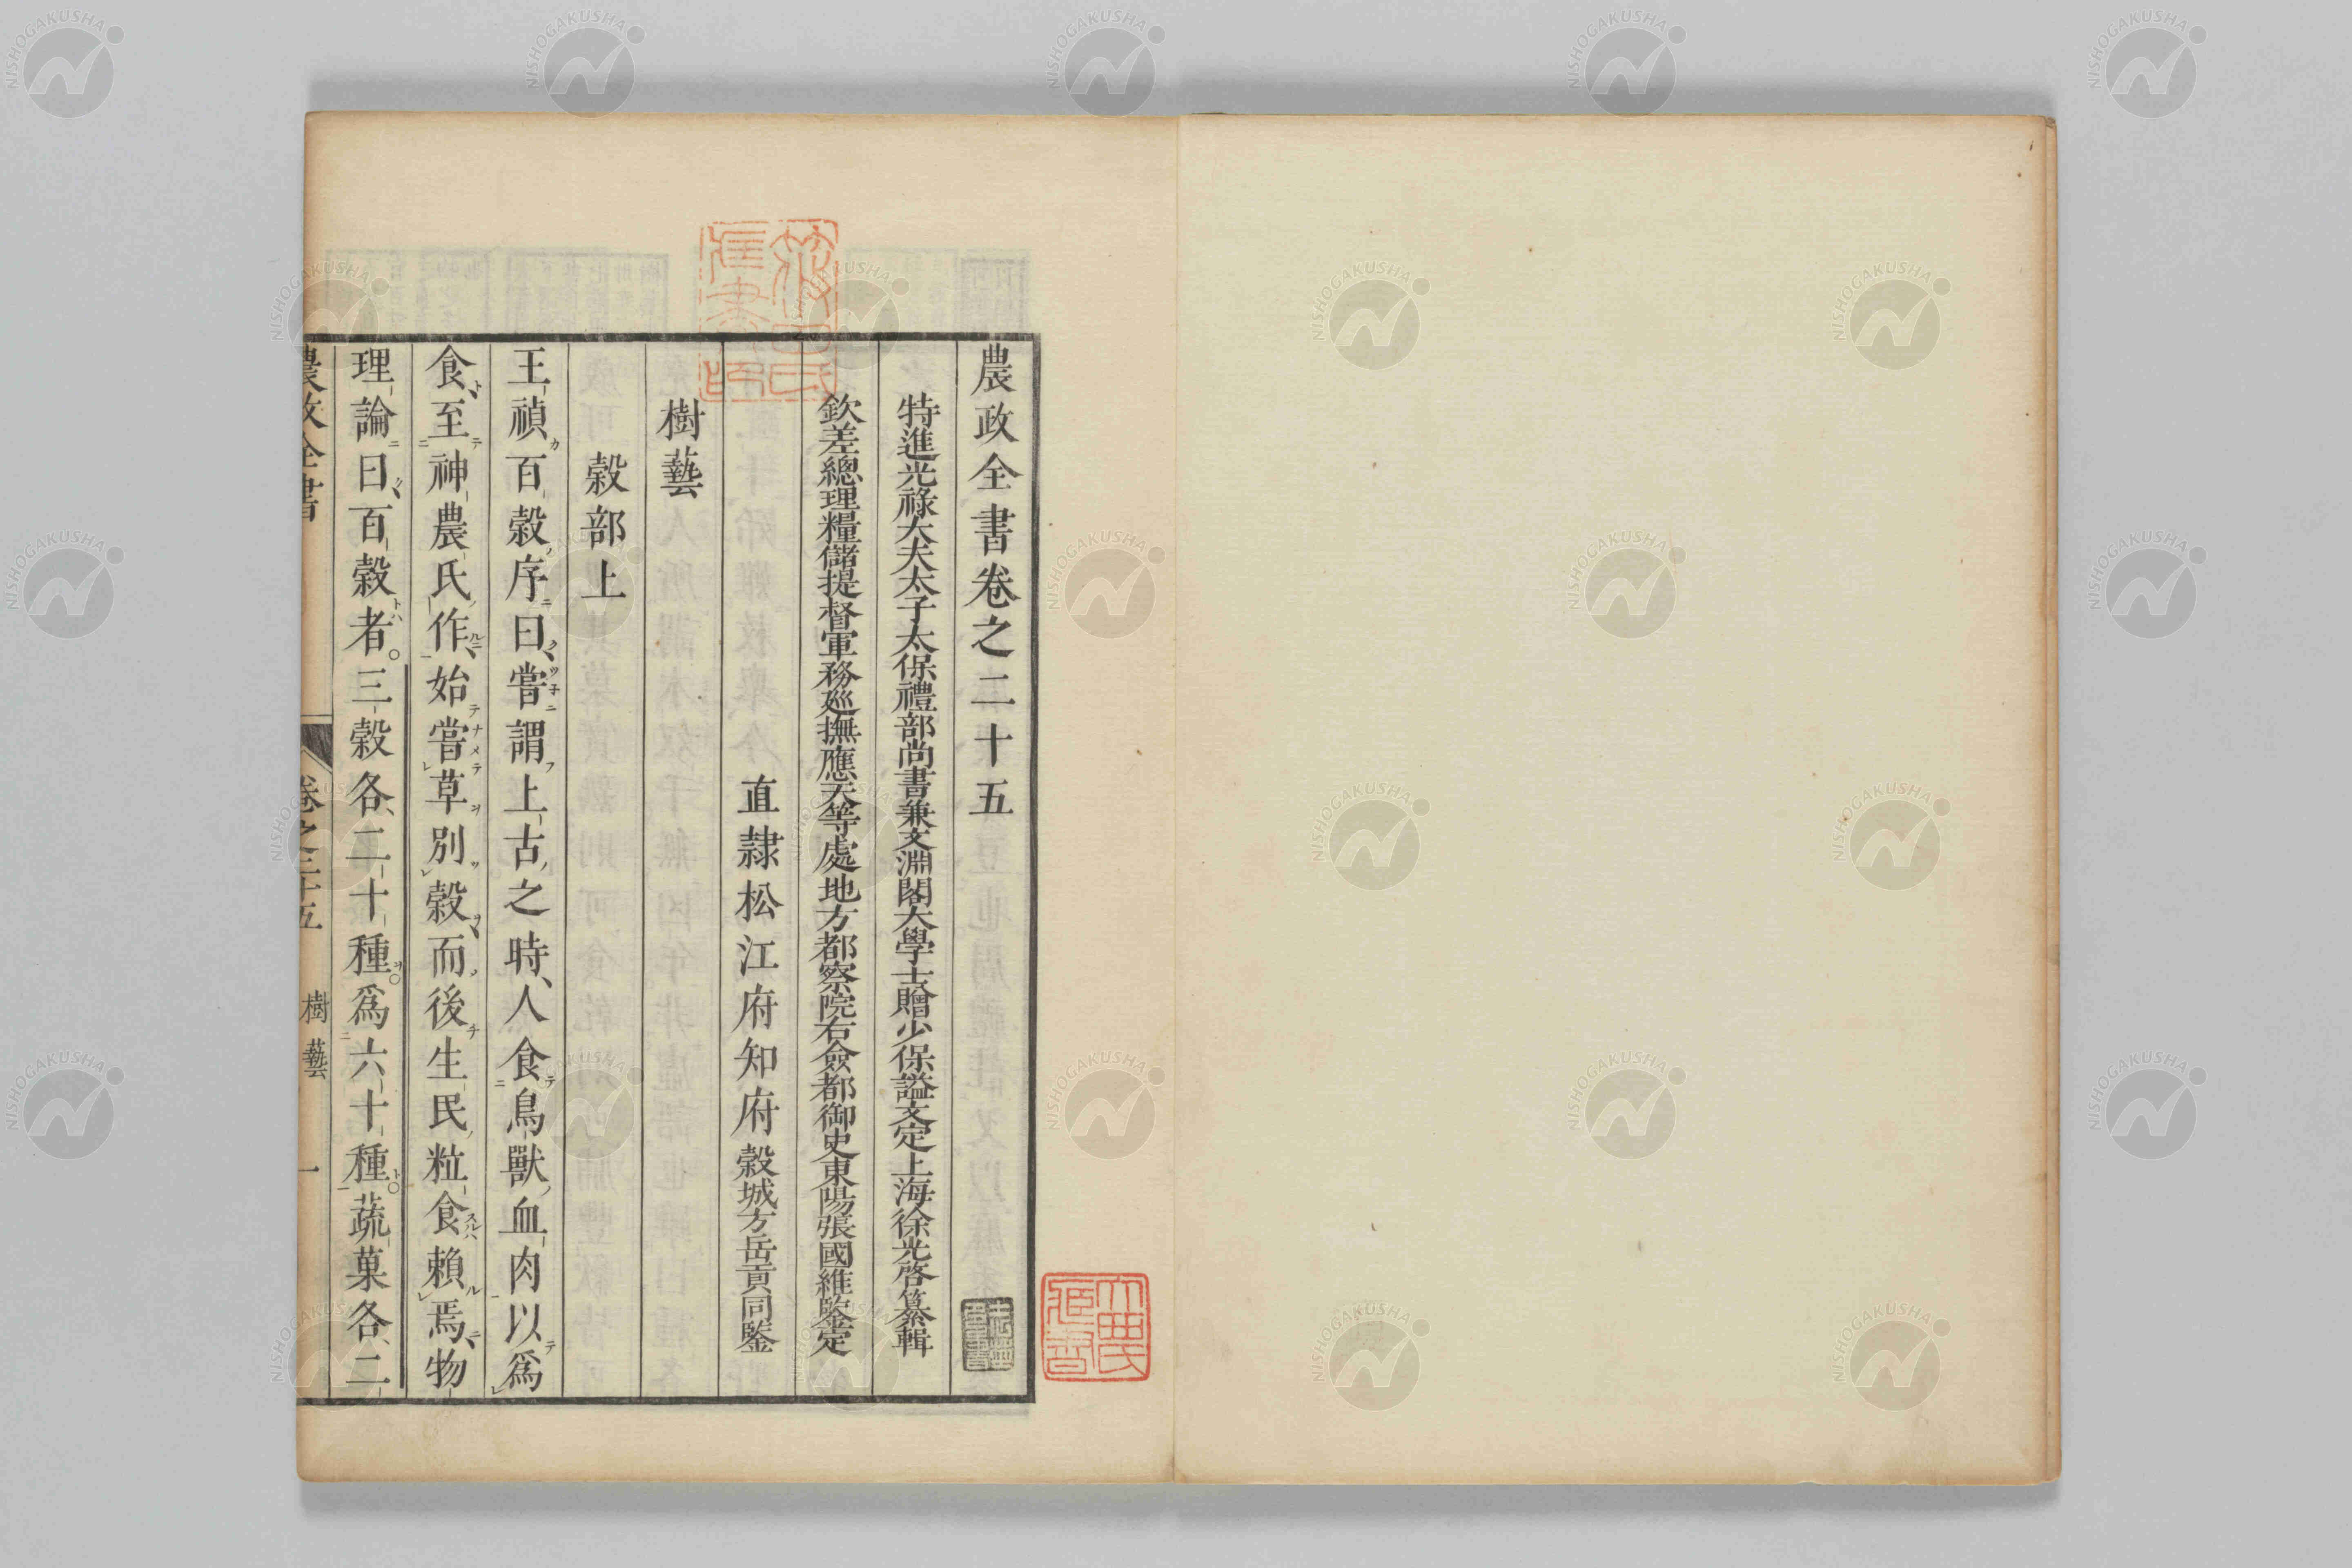 農政全書卷之二十五
特進光祿大夫太子太保禮部尚書兼文淵閣大學士贈少保諡文定上海徐光啓纂輯
欽差總理糧儲提督軍務廵撫應天等處地方都察院右僉都御史東陽張國維鑒定
直隸松江府知府穀城方岳貢同鑒
樹藝
穀部上
王禎百穀序曰嘗謂上古之時人食鳥獸血肉以爲
食至神農氏作始嘗草別穀而後生民粒食賴焉物
理論曰百穀者三穀各二十種爲六十種蔬菓各二
農政全書 卷之二十五 樹藝 一
NISHOGAKUSHA